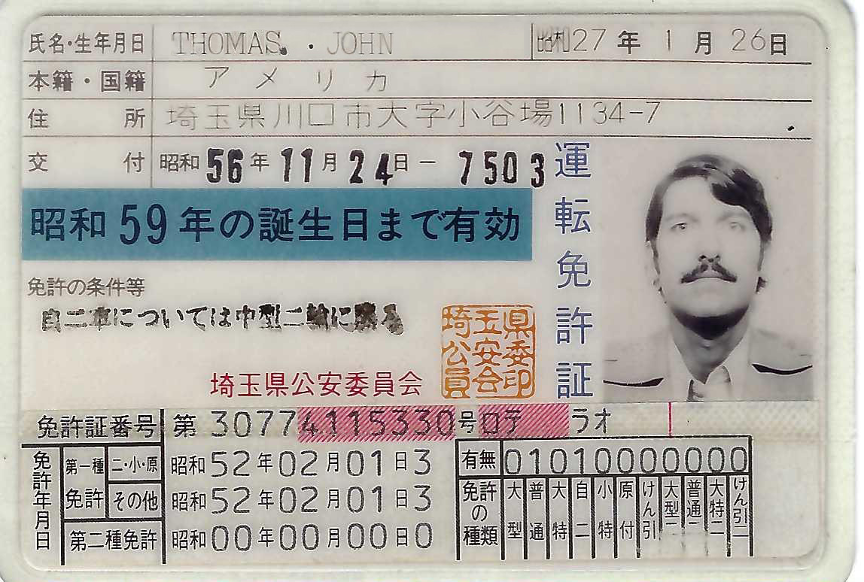 氏名・生年月日 THOMAS. ・ JOHN 昭和27年 1月 26日
本籍・国籍 アメリカ
住所 埼玉県川口市大字小谷場1134-7
交付 昭和56年11月24日 － 7503
昭和59年の誕生日まで有効
運転免許証
免許の条件等
自二車については中型二輪に限る
埼玉県公安委員会
埼玉県公安委員会印
免許証番号 第307741153 30号ロテ ラオ
免許年月日
第一種免許 二・小・原 昭和52年02月01日3
その他 昭和52年02月01日3
第二種免許 昭和00年00月00日0
有無 01010000000
免許の種類 大型 普通 大特 自二 小特 原付 けん引 大型二 普通二 大特二 けん引二